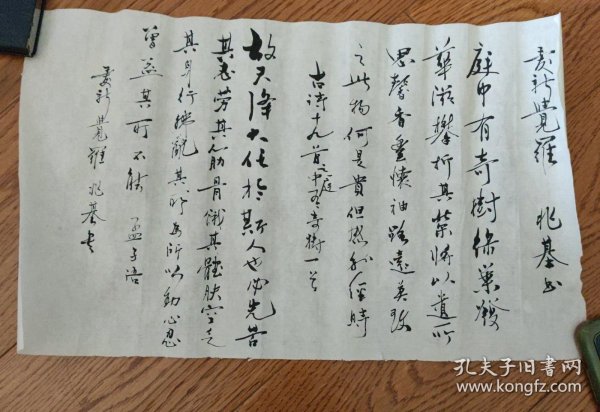 爱新觉罗 兆基书
庭中有奇树绿叶發
華滋攀折其荣将以遗所
思馨香盈懷袖路遠莫致
之此物何足貴但感别經時
古诗十九首之庭中有奇樹一首
故天降大任於斯人也必先苦
其志劳其筋骨餓其體肤空乏
其身行拂亂其所为所以動心忍
曾益其所不能 孟子语
爱新觉羅 兆基书
孔夫子旧书网
www.kongfz.com